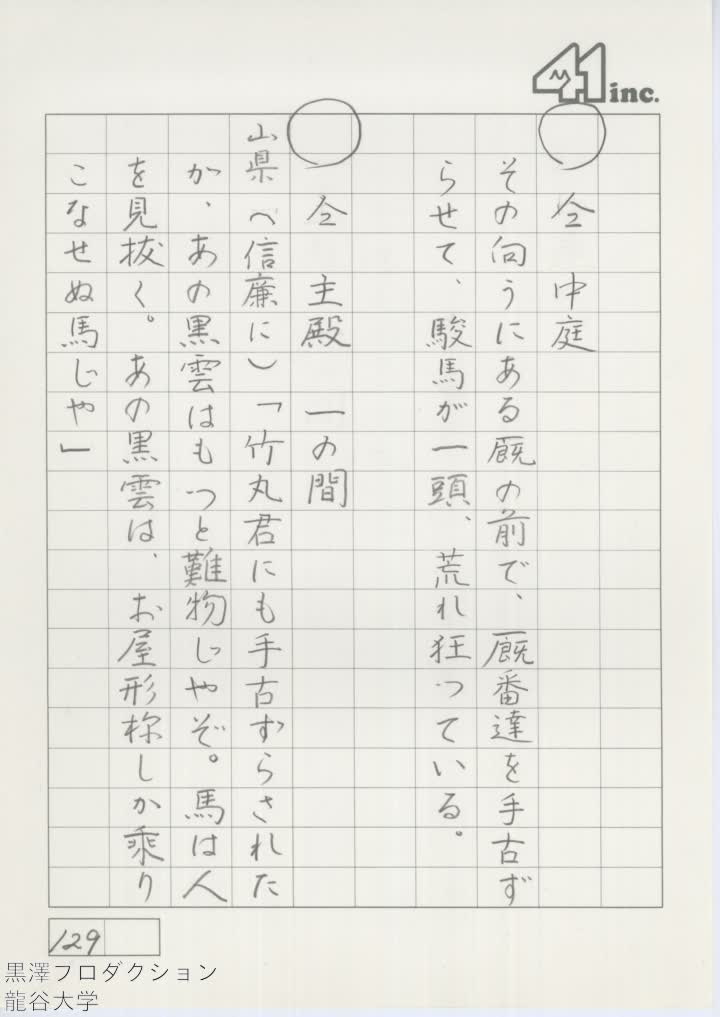 41 inc.
仝 中庭
その向うにある厩の前で、厩番達を手古ず
らせて、駿馬が一頭、荒れ狂っている。
仝 主殿 一の間
山県（信廉に）「竹丸君にも手古ずらされた
が、あの黒雲はもっと難物じゃぞ。馬は人
を見抜く。あの黒雲は、お屋形様しか乗り
こなせぬ馬じゃ」
129
黒澤プロダクション
龍谷大学